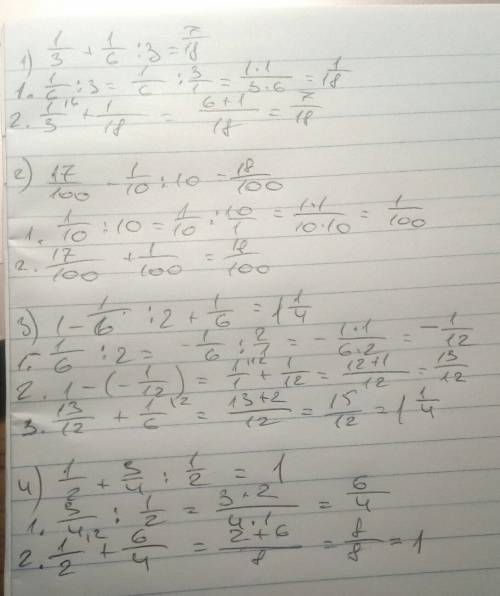 1) 1/3 + 1/6 : 3 = 7/18
1. 1/6 : 3 = 1/6 : 3/1 = 1·1/3·6 = 1/18
2. 1/3 ^16 + 1/18 = 6+1/18 = 7/18
2) 17/100 - 1/10 : 10 = 18/100
1. 1/10 : 10 = 1/10 : 10/1 = 1·1/10·10 = 1/100
2. 17/100 + 1/100 = 18/100
3) 1 - 1/6 : 2 + 1/6 = 1 1/4
1. - 1/6 : 2 = - 1/6 : 2/1 = - 1·1/6·2 = - 1/12
2. 1 - (- 1/12) = 1/1 + 1/12 = 12+1/12 = 13/12
3. 13/12 + 1/6 ^12 = 13+2/12 = 15/12 = 1 1/4
4) 1/2 + 3/4 : 1/2 = 1
1. 3/4 : 1/2 = 3·2/4·1 = 6/4
2. 1/2 ^42 + 6/4 = 2+6/8 = 8/8 = 1